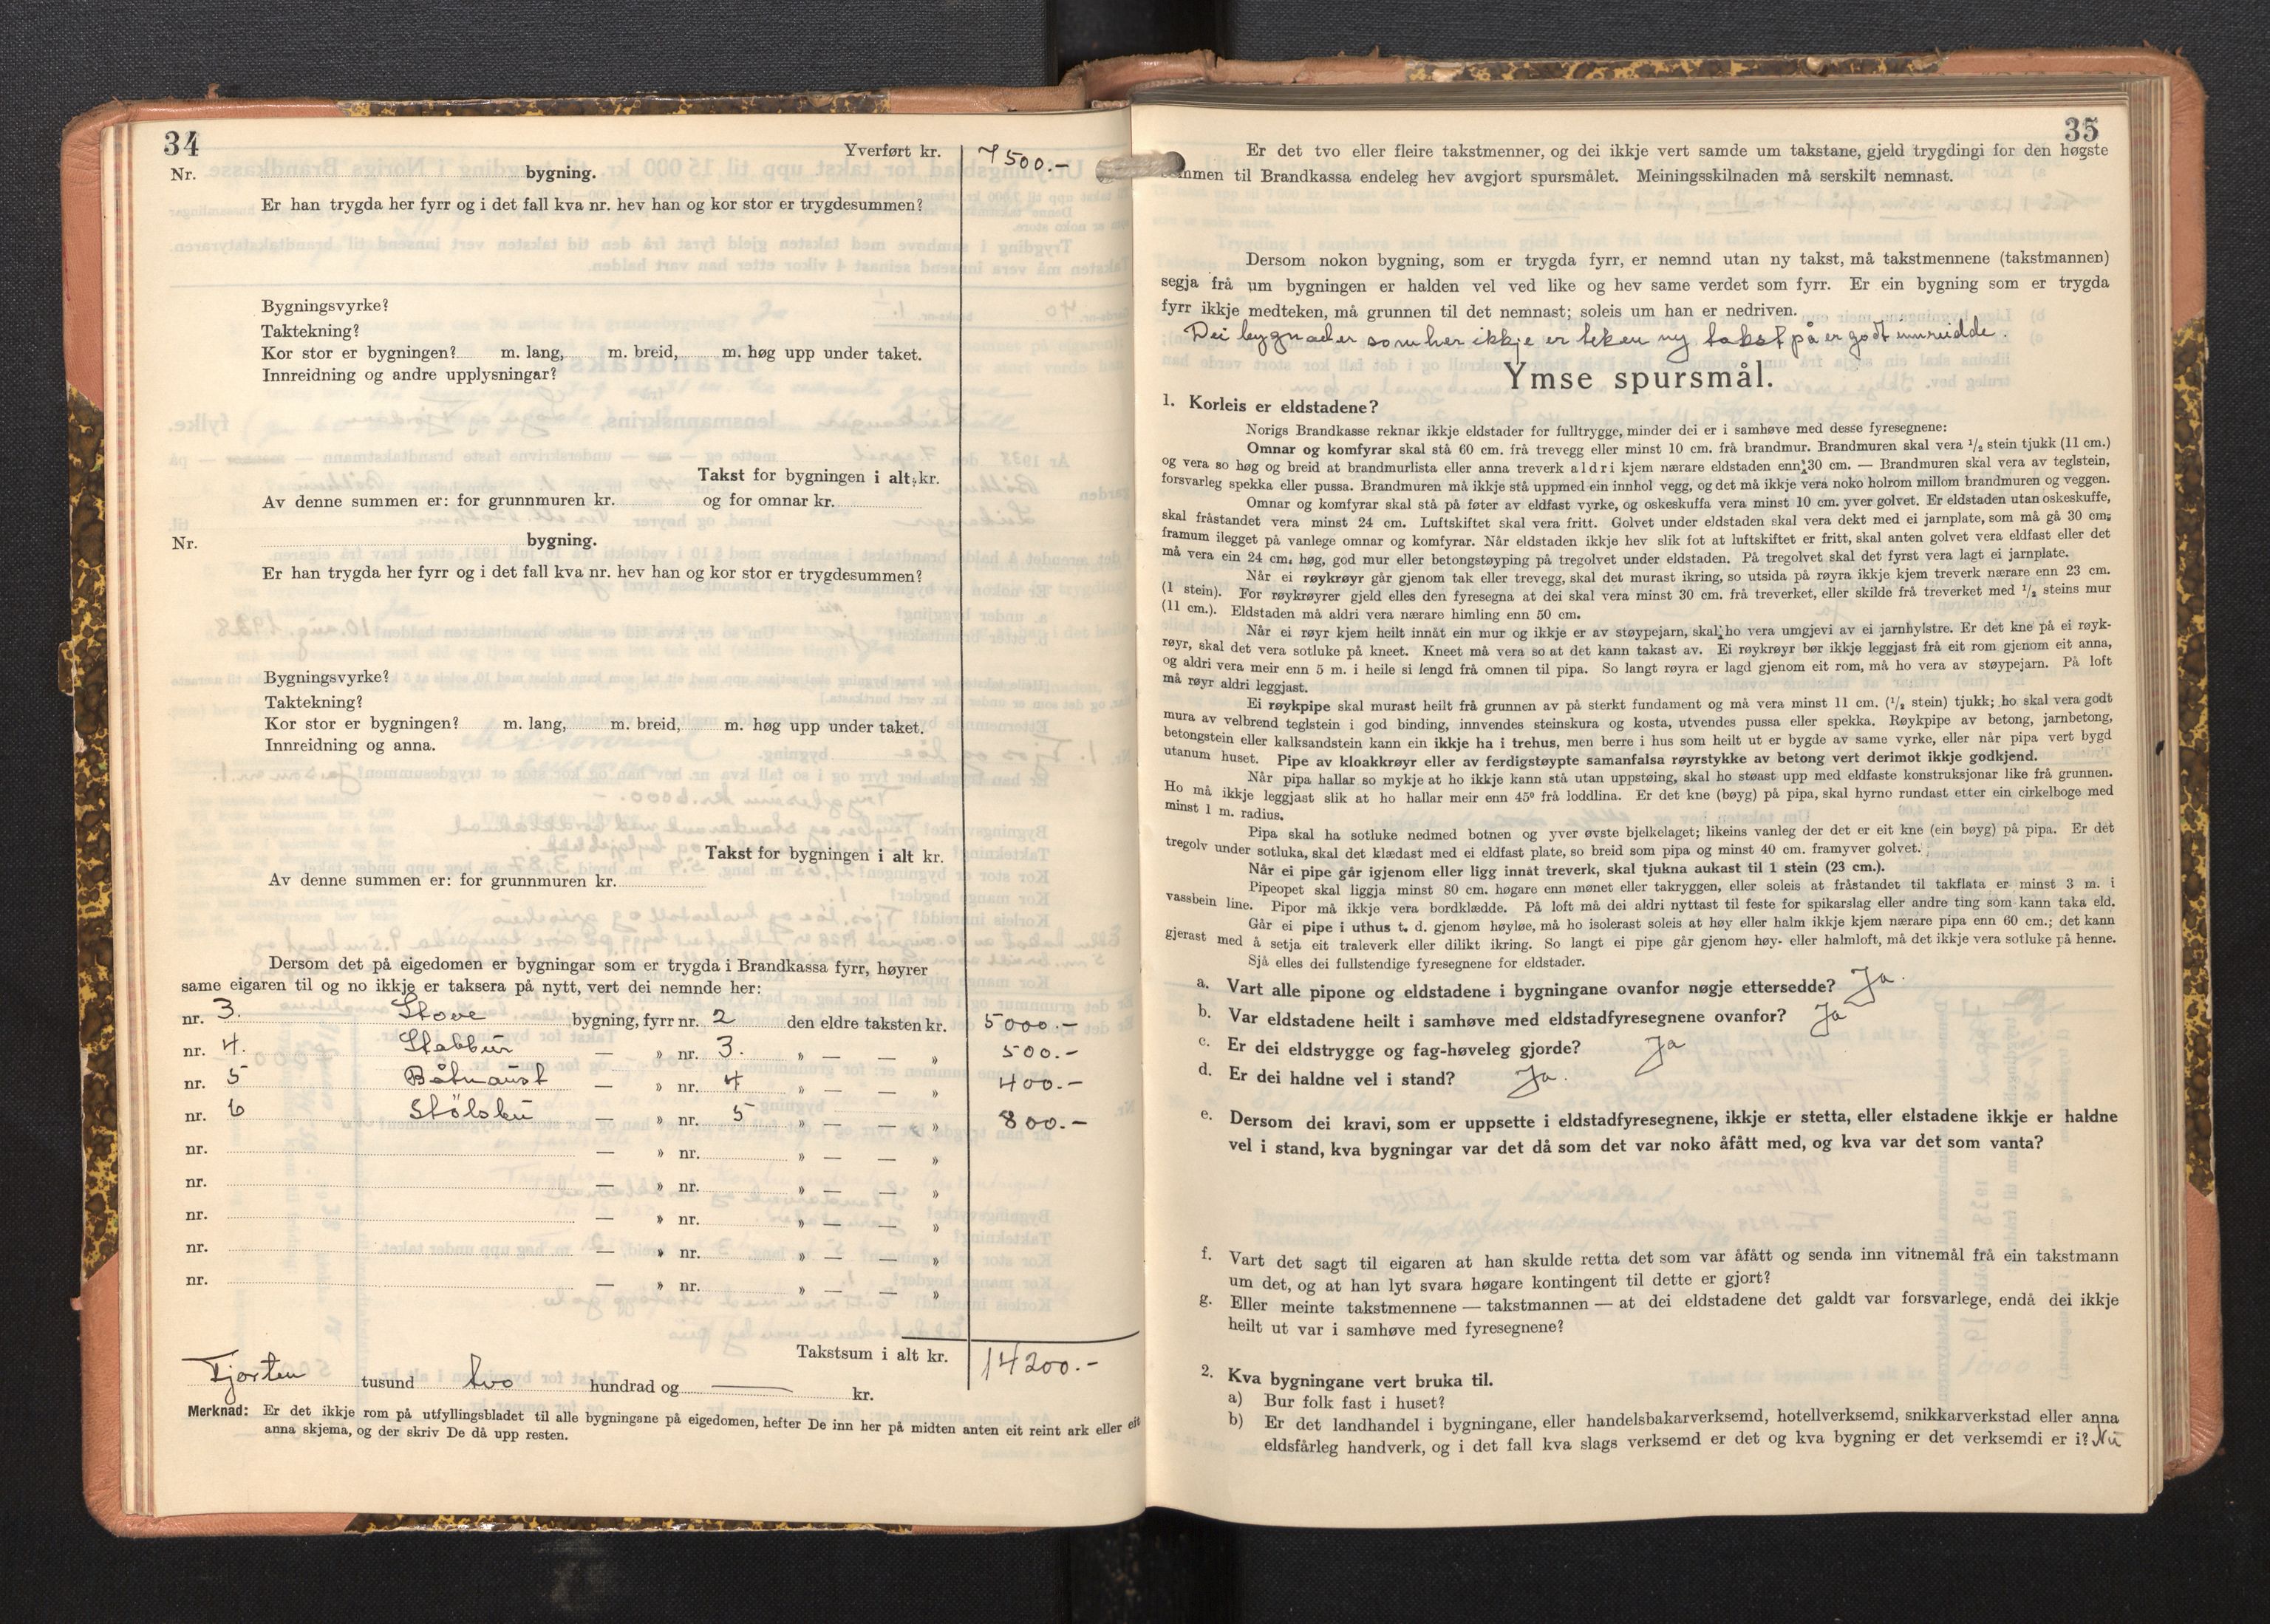 34
Yverført kr. 7500.-
Nr. bygning.
Er han trygda her fyrr og i det fall kva nr. hev han og kor stor er trygdesummen?
Bygningsvyrke?
Taktekning?
Kor stor er bygningen? m. lang, m. breid, m. høg upp under taket.
Innreidning og andre upplysningar?
Takst for bygningen i alt kr.
Av denne summen er: for grunnmuren kr. og for omnar kr.
Nr. bygning.
Er han trygda her fyrr og i det fall kva nr. hev han og kor stor er trygdesummen?
Bygningsvyrke?
Taktekning?
Kor stor er bygningen? m. lang, m. breid, m. høg upp under taket.
Innreidning og anna.
Takst for bygningen i alt kr.
Av denne summen er: for grunnmuren kr.
Dersom det på eigedomen er bygningar som er trygda i Brandkassa fyrr, høyrer
same eigaren til og no ikkje er taksera på nytt, vert dei nemnde her:
nr. 3. Stove bygning, fyrr nr. 2 den eldre taksten kr. 5000.-
nr. 4. Stabbur — » nr. 3. » — — » 500.-
nr. 5 Båtnaust — » nr. 4 » — — » 400.-
nr. 6 Stölsbu — » nr. 5 » — — » 800.-
nr. — » nr. » — — »
nr. — » nr. » — — »
nr. — » nr. » — — »
nr. — » nr. » — — »
nr. — » nr. » — — »
Takstsum i alt kr. 14200.-
Fjorten tusund tvo hundrad og — kr.
Merknad: Er det ikkje rom på utfyllingsbladet til alle bygningane på eigedomen, hefter De inn her på midten anten eit reint ark eller eit
anna skjema, og der skriv De då upp resten.
35
Er det tvo eller fleire takstmenner, og dei ikkje vert samde um takstane, gjeld trygdingi for den høgste
summen til Brandkassa endeleg hev avgjort spursmålet. Meiningsskilnaden må serskilt nemnast.
Dersom nokon bygning, som er trygda fyrr, er nemnd utan ny takst, må takstmennene (takstmannen)
segja frå um bygningen er halden vel ved like og hev same verdet som fyrr. Er ein bygning som er trygda
fyrr ikkje medteken, må grunnen til det nemnast; soleis um han er nedriven.
Dei bygnader som her ikkje er teken ny takst på er godt innreidde.
Ymse spursmål.
1. Korleis er eldstadene?
Norigs Brandkasse reknar ikkje eldstader for fulltrygge, minder dei er i samhøve med desse fyresegnene:
Omnar og komfyrar skal stå 60 cm. frå trevegg eller minst 10 cm. frå brandmur. Brandmuren skal vera 1/2 stein tjukk (11 cm.)
og vera so høg og breid at brandmurlista eller anna treverk aldri kjem nærare eldstaden enn 30 cm. — Brandmuren skal vera av teglstein,
forsvarleg spekka eller pussa. Brandmuren må ikkje stå uppmed ein innhol vegg, og det må ikkje vera noko holrom millom brandmuren og veggen.
Omnar og komfyrar skal stå på føter av eldfast vyrke, og oskeskuffa vera minst 10 cm. yver golvet. Er eldstaden utan oskeskuffe,
skal fråstandet vera minst 24 cm. Luftskiftet skal vera fritt. Golvet under eldstaden skal vera dekt med ei jarnplate, som må gå 30 cm.
framum ilegget på vanlege omnar og komfyrar. Når eldstaden ikkje hev slik fot at luftskiftet er fritt, skal anten golvet vera eldfast eller det
må vera ein 24 cm. høg, god mur eller betongstøyping på tregolvet under eldstaden. På tregolvet skal det fyrst vera lagt ei jarnplate.
Når ei røykrøyr går gjenom tak eller trevegg, skal det murast ikring, so utsida på røyra ikkje kjem treverk nærare enn 23 cm.
(1 stein). For røykrøyrer gjeld elles den fyresegna at dei skal vera minst 30 cm. frå treverket, eller skilde frå treverket med 1/2 steins mur
(11 cm.). Eldstaden må aldri vera nærare himling enn 50 cm.
Når ei røyr kjem heilt innåt ein mur og ikkje er av støypejarn, skal ho vera umgjevi av ei jarnhylstre. Er det kne på ei røyk-
røyr, skal det vera sotluke på kneet. Kneet må vera so at det kann takast av. Ei røykrøyr bør ikkje leggjast frå eit rom gjenom eit anna,
og aldri vera meir enn 5 m. i heile si lengd frå omnen til pipa. So langt røyra er lagd gjenom eit rom, må ho vera av støypejarn. På loft
må røyr aldri leggjast.
Ei røykpipe skal murast heilt frå grunnen av på sterkt fundament og må vera minst 11 cm. (1/2 stein) tjukk; ho skal vera godt
mura av velbrend teglstein i god binding, innvendes steinskura og kosta, utvendes pussa eller spekka. Røykpipe av betong, jarnbetong,
betongstein eller kalksandstein kann ein ikkje ha i trehus, men berre i hus som heilt ut er bygde av same vyrke, eller når pipa vert bygd
utanum huset. Pipe av kloakkrøyr eller av ferdigstøypte samanfalsa røyrstykke av betong vert derimot ikkje godkjend.
Når pipa hallar so mykje at ho ikkje kann stå utan uppstøing, skal ho støast upp med eldfaste konstruksjonar like frå grunnen.
Ho må ikkje leggjast slik at ho hallar meir enn 45° frå loddlina. Er det kne (bøyg) på pipa, skal hyrno rundast etter ein cirkelboge med
minst 1 m. radius.
Pipa skal ha sotluke nedmed botnen og yver øvste bjelkelaget; likeins vanleg der det er eit kne (ein bøyg) på pipa. Er det
tregolv under sotluka, skal det klædast med ei eldfast plate, so breid som pipa og minst 40 cm. framyver golvet.
Når ei pipe går igjenom eller ligg innåt treverk, skal tjukna aukast til 1 stein (23 cm.).
Pipeopet skal liggja minst 80 cm. høgare enn mønet eller takryggen, eller soleis at fråstandet til takflata er minst 3 m. i
vassbein line. Pipor må ikkje vera bordklædde. På loft må dei aldri nyttast til feste for spikarslag eller andre ting som kann taka eld.
Går ei pipe i uthus t. d. gjenom høyløe, må ho isolerast soleis at høy eller halm ikkje kjem nærare pipa enn 60 cm.; det kann
gjerast med å setja eit traleverk eller dilikt ikring. So langt ei pipe går gjenom høy- eller halmloft, må det ikkje vera sotluke på henne.
Sjå elles dei fullstendige fyresegnene for eldstader.
a. Vart alle pipone og eldstadene i bygningane ovanfor nøgje ettersedde? Ja.
b. Var eldstadene heilt i samhøve med eldstadfyresegnene ovanfor? Ja
c. Er dei eldstrygge og fag-høveleg gjorde? Ja
d. Er dei haldne vel i stand? Ja.
e. Dersom dei kravi, som er uppsette i eldstadfyresegnene, ikkje er stetta, eller elstadene ikkje er haldne
vel i stand, kva bygningar var det då som det var noko åfått med, og kva var det som vanta?
f. Vart det sagt til eigaren at han skulde retta det som var åfått og senda inn vitnemål frå ein takstmann
um det, og at han lyt svara høgare kontingent til dette er gjort?
g. Eller meinte takstmennene — takstmannen — at dei eldstadene det galdt var forsvarlege, endå dei ikkje
heilt ut var i samhøve med fyresegnene?
2. Kva bygningane vert bruka til.
a) Bur folk fast i huset?
b) Er det landhandel i bygningane, eller handelsbakarverksemd, hotellverksemd, snikkarverkstad eller anna
eldsfårleg handverk, og i det fall kva slags verksemd er det og kva bygning er det verksemdi er i? Nei